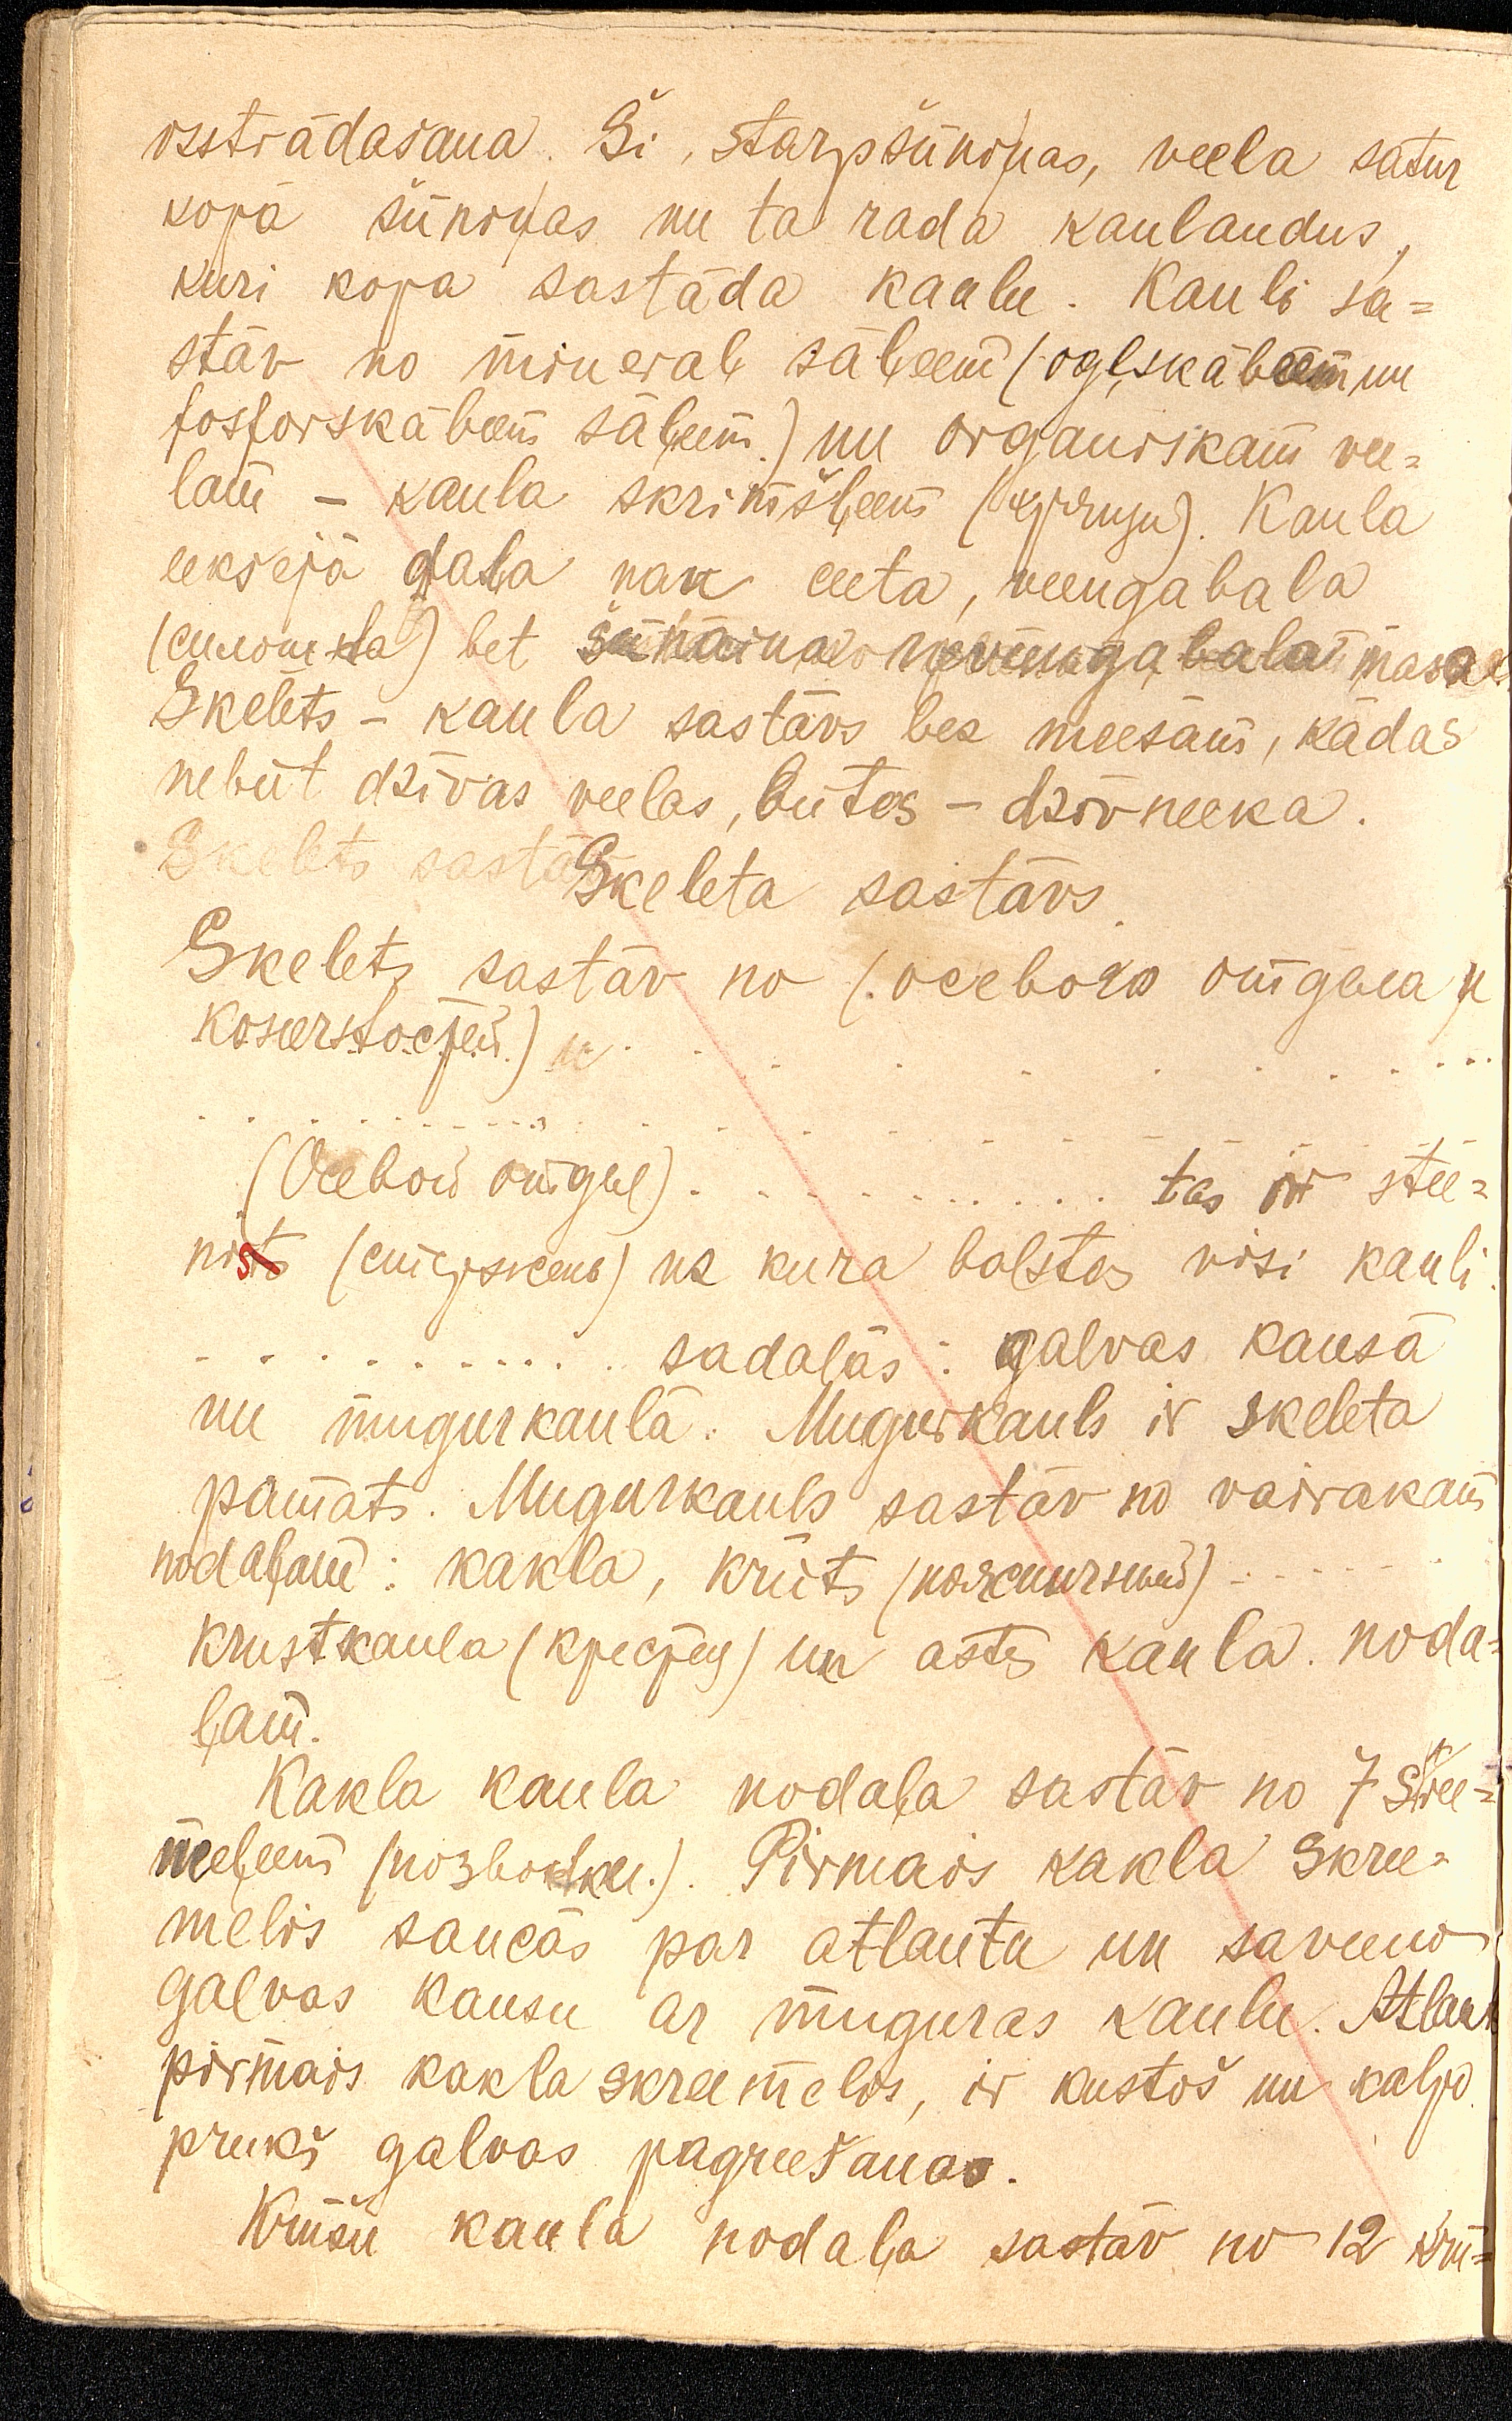 isstrādašana. Ši, starpšūniņas, veela satur
kopā šūniņas un ta rada kaulaudus,
kuri kopa sastāda kaulu. Kauli sa=
stāv no mineral sāļeem (ogļskābeem un
fosforskābeem sāļeem.) un organiskam vee=
lam – kaula skrimšļeem (хрящи). Kaula
eeksejā daļa nau ceeta, veengabala
bet masa
Skelets – kaula sastāvs bes meesām, kādas
nebūt dsīvas veelas, būtes – dsīvneeka.
Skelets sastāv Skeleta sastāvs.
Skelets sastāv no (осевого отдела и
конечностей.) и . . . . . . . . . .
. . . . . . . . . . . . . . . . . .
(Осевой отдел) . . . . . . . . . . tas ir stee=
nis (стержень) us kura balstas visi kauli.
. . . . . . . . . . sadalās: galvas kausā
un mugurkaulā. Mugurkauls ir skeleta
pamats. Mugurkauls sastāv no vairakam
nodaļam: kakla, krūts (поясничный) . . . . .
krustkaula (крестец) un astes kaula. noda=
ļam.
Kakla kaula nodaļa sastāv no 7 skree=
meļeem (позвонки.). Pirmais kakla skree=
melis saucās par atlantu un saveeno
galvas kausu ar muguras kaulu. Atlant
pirmais kakla skreemelis, ir kustošs un kalpo
preekš galvas pagreešanas.
Krūšu kaula nodaļa sastāv no 12 krū=